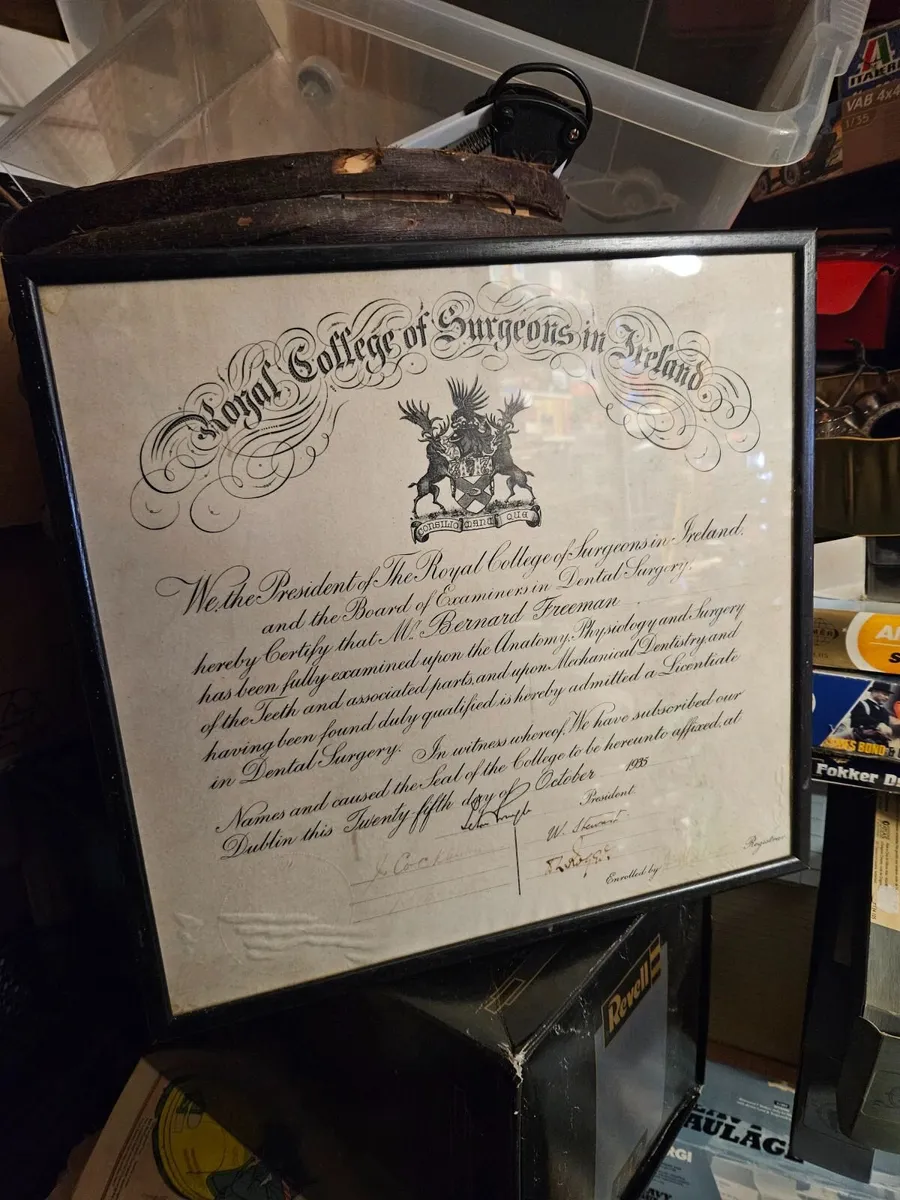 ITALERI
VAB 4x4
1/35
Royal College of Surgeons in Ireland.
CONSILIO MANU QUE
We, the President of The Royal College of Surgeons in Ireland,
and the Board of Examiners in Dental Surgery,
hereby Certify that Mr. Bernard Freeman
has been fully examined upon the Anatomy, Physiology and Surgery
of the Teeth and associated parts, and upon Mechanical Dentistry, and
having been found duly qualified is hereby admitted a Licentiate
in Dental Surgery. In witness whereof, We have subscribed our
Names and caused the Seal of the College to be hereunto affixed, at
Dublin this Twenty fifth day of October 1935
President.
W. Stewart
Registrar
Enrolled by
BOND
Fokker
Revell